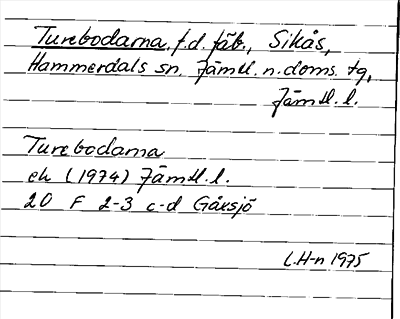 Turebodarna, f.d. fäb., Sikås,
Hammerdals sn. Jämtl. n. doms. tg,
Jämtl. l.
Turebodarna
ek (1974) Jämtl. l.
20 F 2-3 c-d Gåxsjö
L.H-n 1975